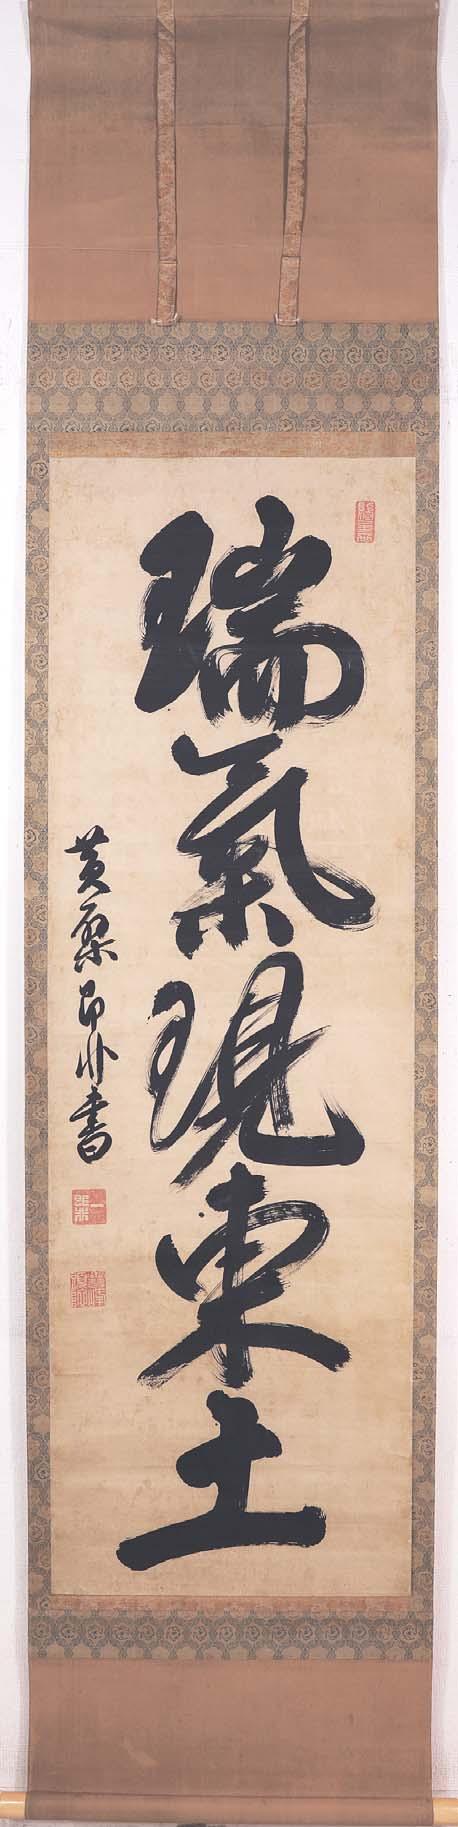 瑞氣現東土
黄檗即非書